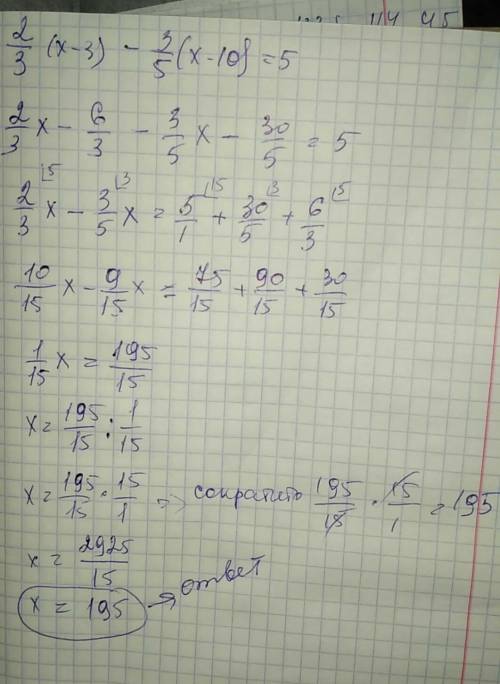 2/3 (x-3) - 3/5 (x-10) = 5
2/3 x - 6/3 - 3/5 x - 30/5 = 5
2/3 ⌊5 x - 3/5 ⌊3 x = 5/1 ⌊15 + 30/5 ⌊3 + 6/3 ⌊5
10/15 x - 9/15 x = 75/15 + 90/15 + 30/15
1/15 x = 195/15
x = 195/15 : 1/15
x = 195/15 · 15/1 => сократить 195/15 · 15/1 = 195
x = 2925/15
x = 195 → ответ